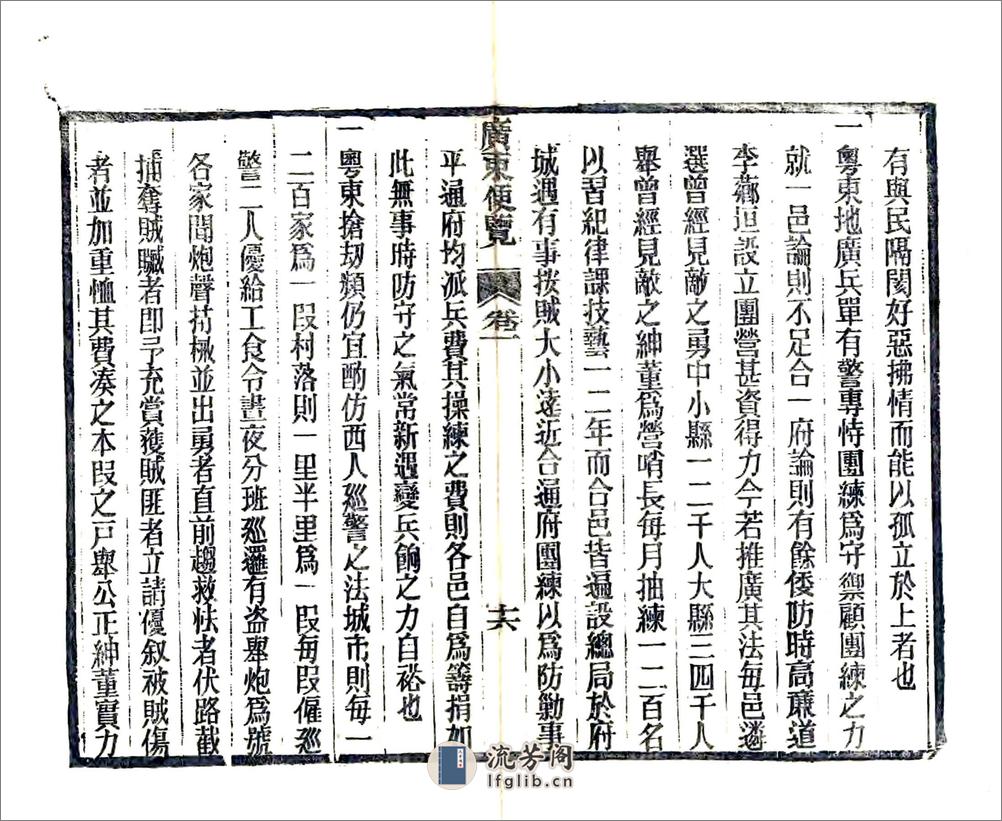 有與民隔閡好惡拂情而能以孤立於上者也
一粵東地廣兵單有警專恃團練爲守禦顧團練之力
就一邑論則不足合一府論則有餘倭防時高亷道
李薌垣設立團營甚資得力今若推廣其法每邑遴
選曾經見敵之勇中小縣一二千人大縣三四千人
舉曾經見敵之紳董爲營哨長每月抽練一二百名
以習紀律課技藝一二年而合邑皆遍設總局於府
城遇有事按賊大小遠近合通府團練以爲防勦事
平通府均派兵費其操練之費則各邑自爲籌捐如
此無事時防守之氣常新遇變兵餉之力自裕也
一粵東搶刼類仍宜酌仿西人廵警之法城市則每一
二百家爲一段村落則一里半里爲一段每段僱廵
警二人優給工食令晝夜分班廵邏有盜舉炮爲號
各家聞炮聲持械並出勇者直前趨救怯者伏路截
捕奪賊贓者卽予充賞獲賊匪者立請優叙被賊傷
者並加重恤其費湊之本段之戶舉公正紳董實力
廣東便覽 卷一 十六
流芳阁
lfglib.cn